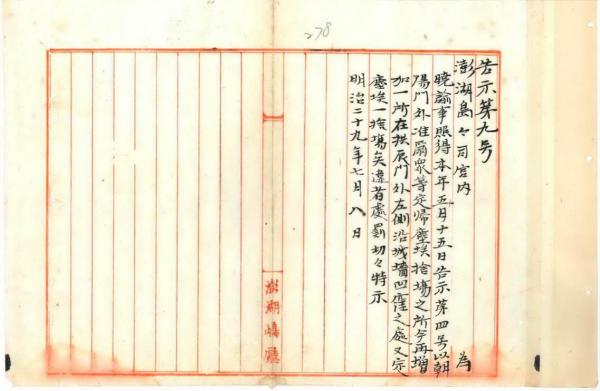 278
告示第九号
澎湖島々司宮内 為
曉諭事照得本年五月十五日告示第四号以朝
陽門外准爾衆等定帰塵埃捨場之所今再増
加一所在拱辰門外左側沿城墻凹窪之處又定
塵埃一捨場矣違者處罰切々特示
明治二十九年七月八日
澎湖島廳